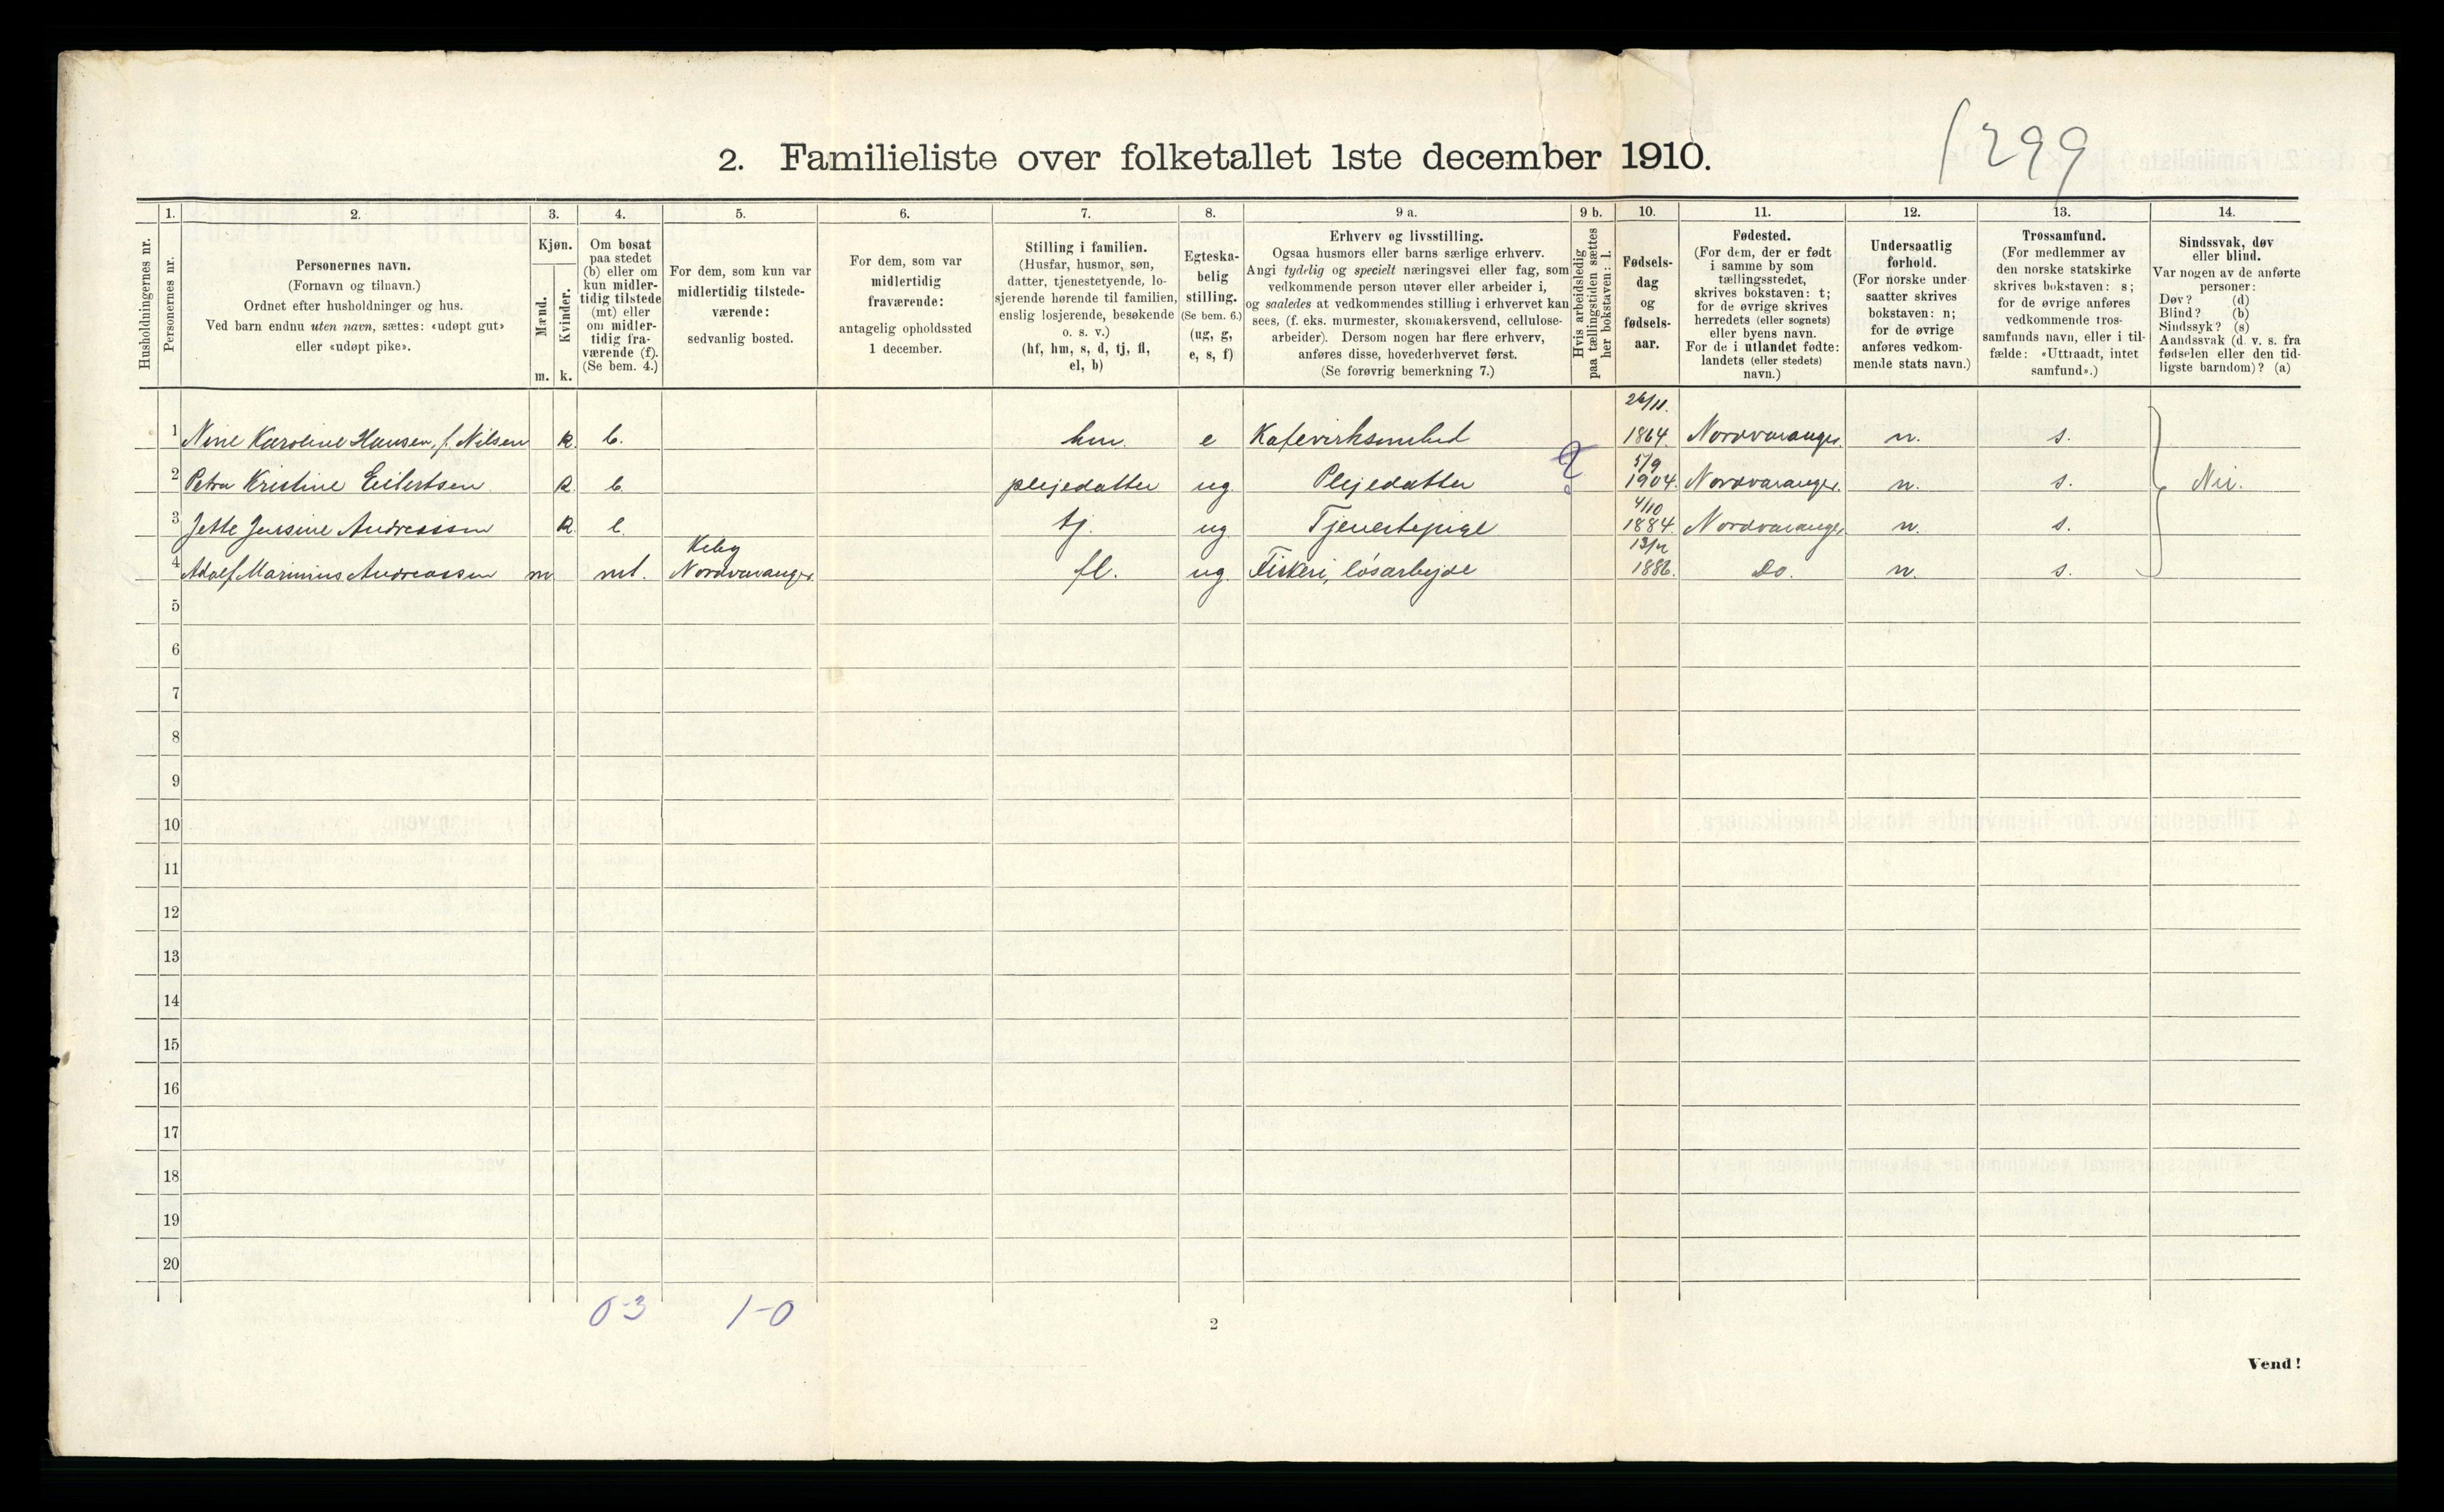 1299
2. Familieliste over folketallet 1ste december 1910.
Husholdningernes nr.
1.
Personernes nr.
2.
Personernes navn.
(Fornavn og tilnavn.)
Ordnet efter husholdninger og hus.
Ved barn endnu uten navn, sættes: «udøpt gut»
eller «udøpt pike».
3.
Kjøn.
Mænd.
Kvinder.
m.
k.
4.
Om bosat
paa stedet
(b) eller om
kun midler-
tidig tilstede
(mt) eller
om midler-
tidig fra-
værende (f).
(Se bem. 4.)
5.
For dem, som kun var
midlertidig tilstede-
værende:
sedvanlig bosted.
6.
For dem, som var
midlertidig
fraværende:
antagelig opholdssted
1 december.
7.
Stilling i familien.
(Husfar, husmor, søn,
datter, tjenestetyende, lo-
sjerende hørende til familien,
enslig losjerende, besøkende
o. s. v.)
(hf, hm, s, d, tj, fl,
el, b)
8.
Egteska-
belig
stilling.
(Se bem. 6.)
(ug, g,
e, s, f)
9 a.
Erhverv og livsstilling.
Ogsaa husmors eller barns særlige erhverv.
Angi tydelig og specielt næringsvei eller fag, som
vedkommende person utøver eller arbeider i,
og saaledes at vedkommendes stilling i erhvervet kan
sees, (f. eks. murmester, skomakersvend, cellulose-
arbeider). Dersom nogen har flere erhverv,
anføres disse, hovederhvervet først.
(Se forøvrig bemerkning 7.)
9 b.
Hvis arbeidsledig
paa tællingstiden sættes
her bokstaven: l.
10.
Fødsels-
dag
og
fødsels-
aar.
11.
Fødested.
(For dem, der er født
i samme by som
tællingsstedet,
skrives bokstaven: t;
for de øvrige skrives
herredets (eller sognets)
eller byens navn.
For de i utlandet fødte:
landets (eller stedets)
navn.)
12.
Undersaatlig
forhold.
(For norske under-
saatter skrives
bokstaven: n;
for de øvrige
anføres vedkom-
mende stats navn.)
13.
Trossamfund.
(For medlemmer av
den norske statskirke
skrives bokstaven: s;
for de øvrige anføres
vedkommende tros-
samfunds navn, eller i til-
fælde: «Uttraadt, intet
samfund».)
14.
Sindssvak, døv
eller blind.
Var nogen av de anførte
personer:
Døv? (d)
Blind? (b)
Sindssyk? (s)
Aandssvak (d. v. s. fra
fødselen eller den tid-
ligste barndom)? (a)
1 Nine Karoline Hansen, f. Nilsen k. b. hm. e Kafevirksomhed 26/11. 1864. Nordvaranger. n. s.
2 Petra Kristine Eilertsen k. b. plejedatter ug. Plejedatter 5/9 1904. Nordvaranger. n. s. Nei.
3 Jette Jensine Andreassen k. b. tj. ug. Tjenestepige 4/10 1884. Nordvaranger. n. s.
4 Adolf Marinius Andreassen m mt. Kiby Nordvaranger. fl. ug. Fiskeri, løsarbejde 1886. Do. n. s.
5
6
7
8
9
10
11
12
13
14
15
16
17
18
19
20
0-3 1-0
2
Vend!